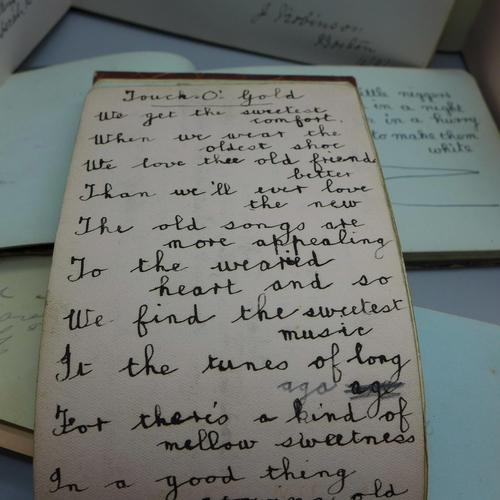 J Robinson
Boston
little niggers
in a night
in a hurry
to make them
white
Touch-O'-Gold
We get the sweetest
comfort.
When we wear the
oldest shoe
We love thee old friends
better
Than we'll ever love
the new
The old songs are
more appealing
To the wearied
heart and so
We find the sweetest
music
It the tunes of long
ago age
For there's a kind of
mellow sweetness
In a good thing
old